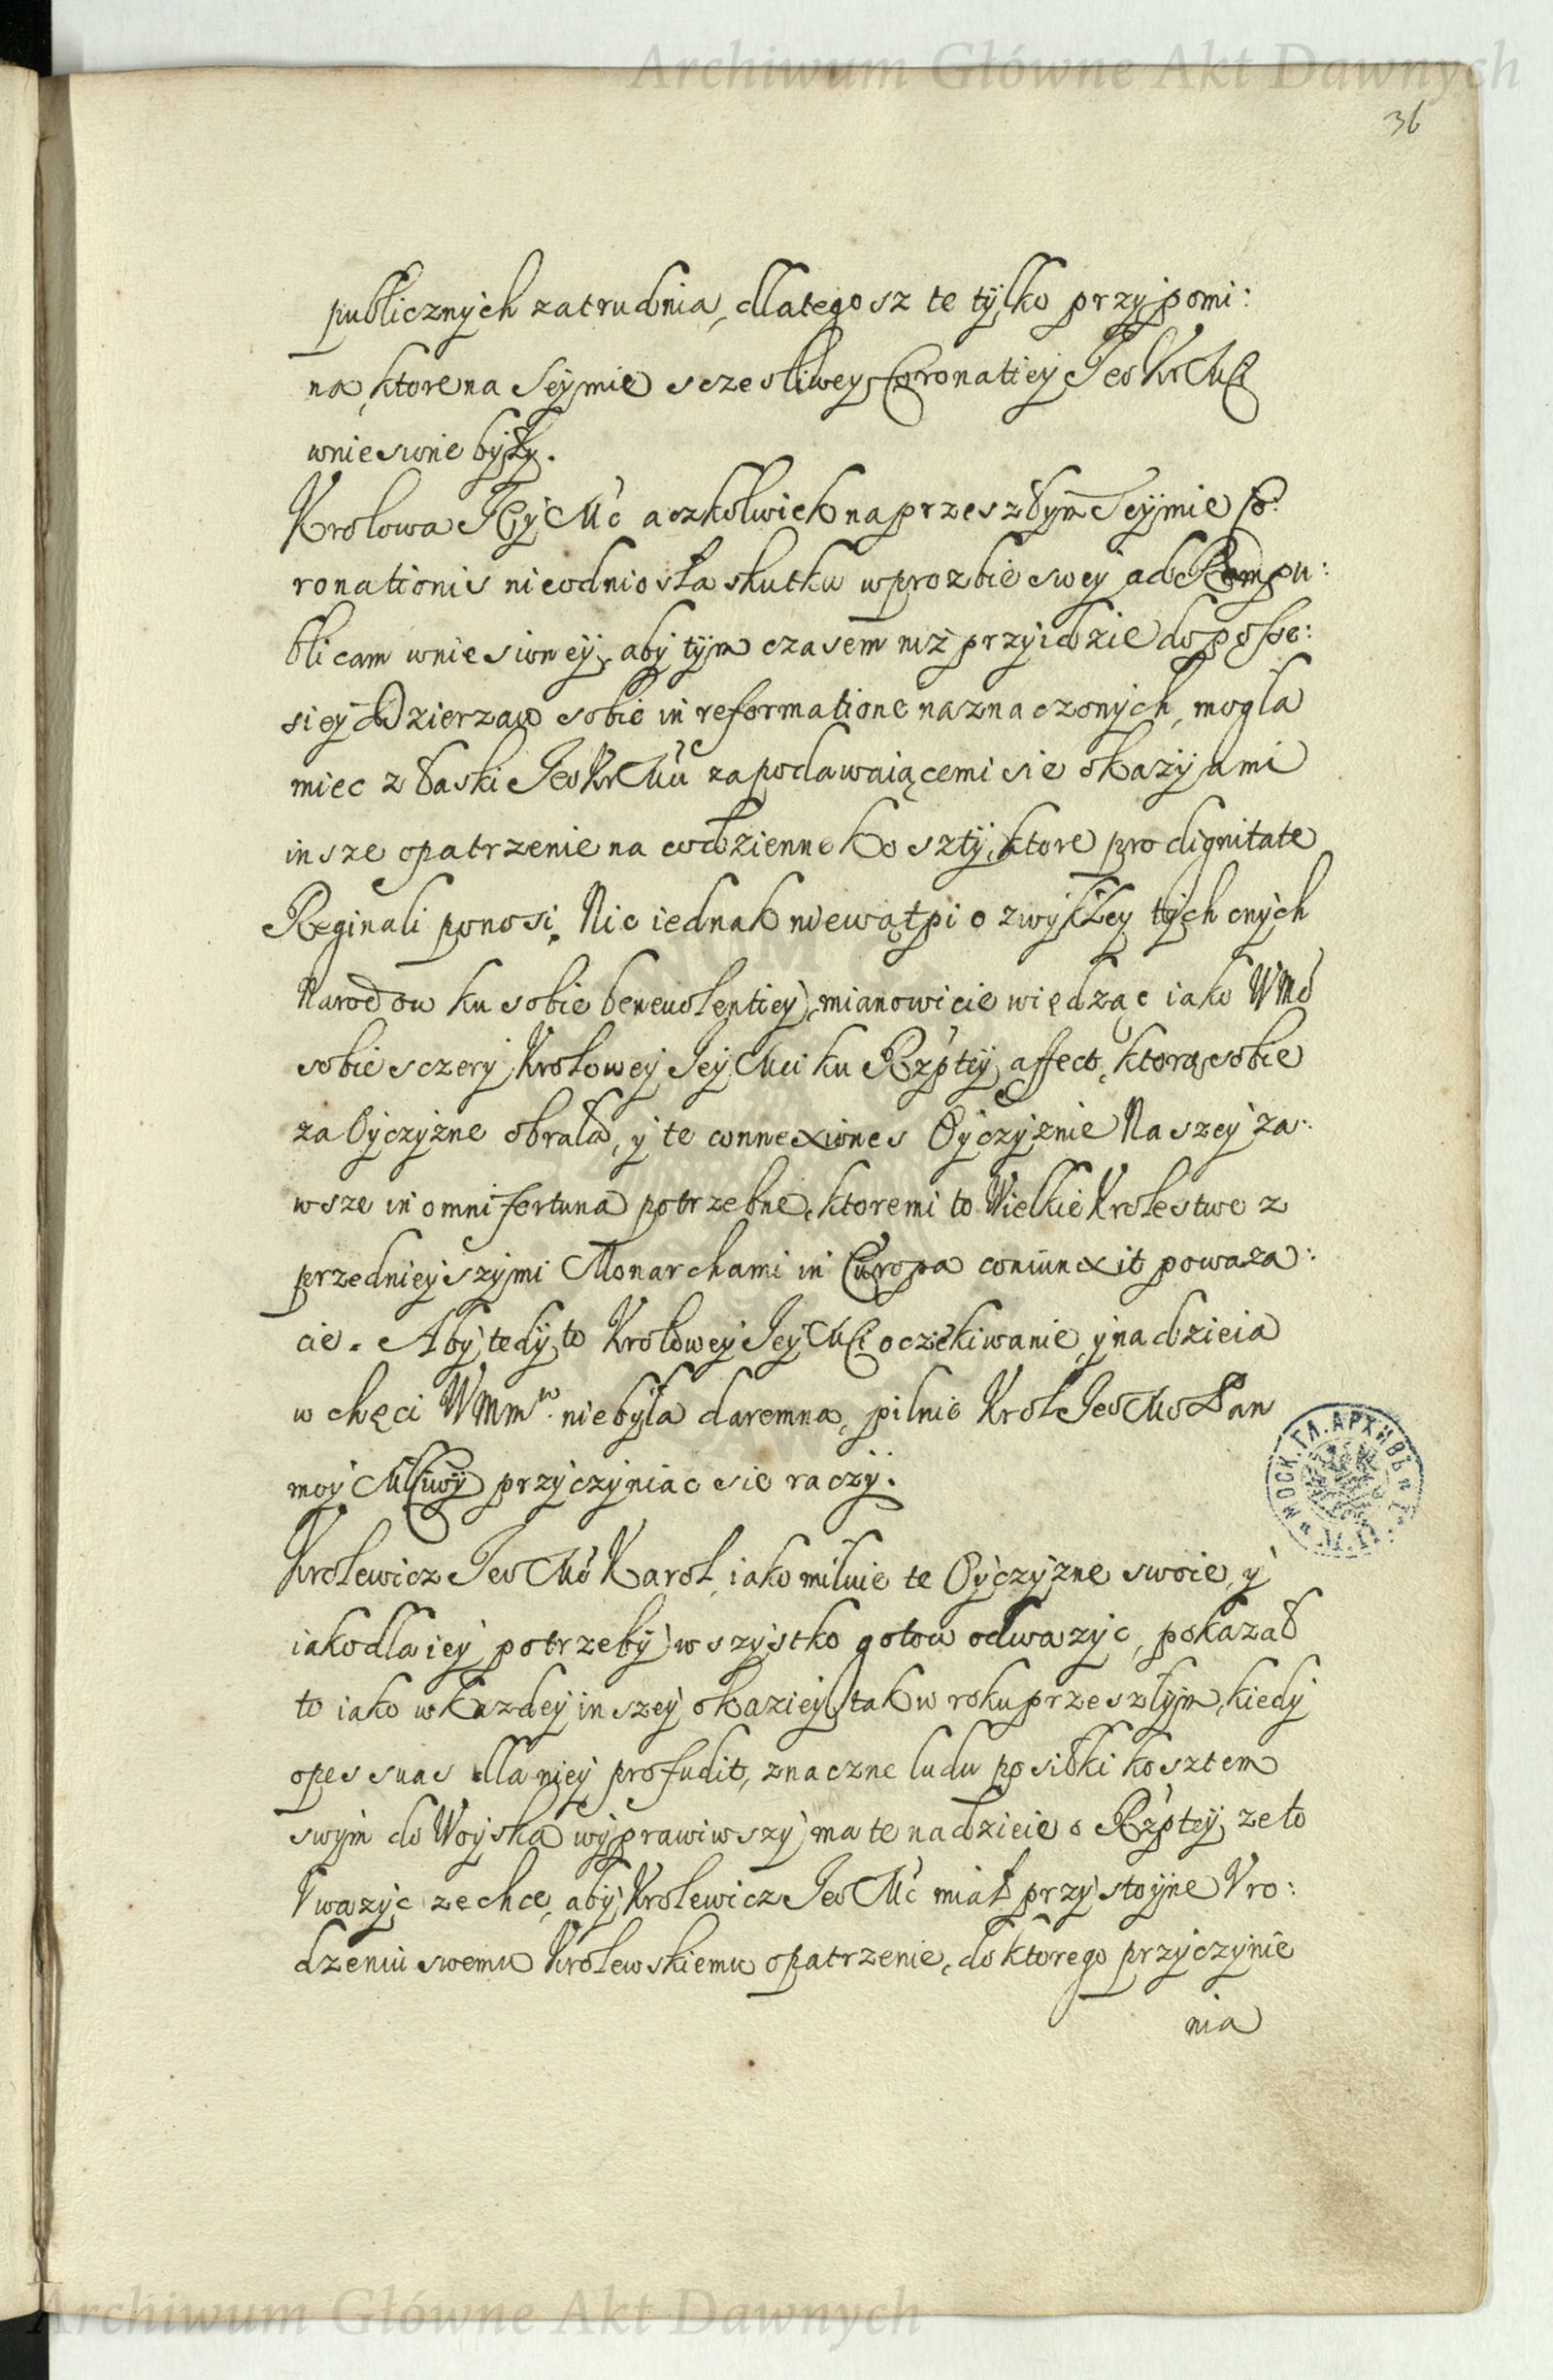 Archiwum Główne Akt Dawnych
36
publicznych zatrudnia, dlategosz te tylko przypomi:
na, ktore na Seymie sczesliwey Coronatiey Jeo Kr Mci
wniesione były.
Krolowa Jey Mc aczkolwiek na przeszłym Seymie Co:
ronationis nieodniosła skutku w prozbie swey ad Rempu:
blicam wniesioney, aby tym czasem niż przyidzie do posse:
siey Dzierzaw sobie in reformatione naznaczonych, mogla
miec z łaski Jeo Kr Mci zapodawaiącemi sie okazyami
insze opatrzenie na codzienne koszty, ktore pro dignitate
Reginali ponosi. Nic iednak niewątpi o zwykłey tych cnych
Narodow ku sobie benevolentiey, mianowicie wiedząc iako WMc
sobie sczery Krolowey Jey Mci ku Rzptey affect, ktorą sobie
za Oyczyzne obrała, y te connexiones Oyczyznie Naszey za:
wsze in omni fortuna potrzebne, ktoremi to Wielkie Krolestwo z
przednieyszymi Monarchami in Europa coniunxit poważa:
cie. Aby tedy to Krolowey Jey Mci oczekiwanie, y nadzieia
w chęci WMmw. niebyla daremna, pilnie Krol Jeo Mc Pan
moy Mciwy przyczyniac sie raczy.
Krolewicz Jeo Mc Karol, iako miluie te Oyczyzne swoie, y
iako dla iey potrzeby wszystko gotow odwazyc, pokazał
to iako w kazdey inszey okaziey, tak w roku przeszlym, kiedy
opes suas dla niey profudit, znaczne ludu posiłki kosztem
swym do Woyska wyprawiwszy, ma te nadzieie o Rzptey, ze to
Vwazyc zechce, aby Krolewicz Jeo Mc miał przystoyne Vro:
dzeniu swemu Krolewskiemu opatrzenie, do ktorego przyczynie
nia
МОСК. ГЛ. АРХИВЪ
Archiwum Główne Akt Dawnych